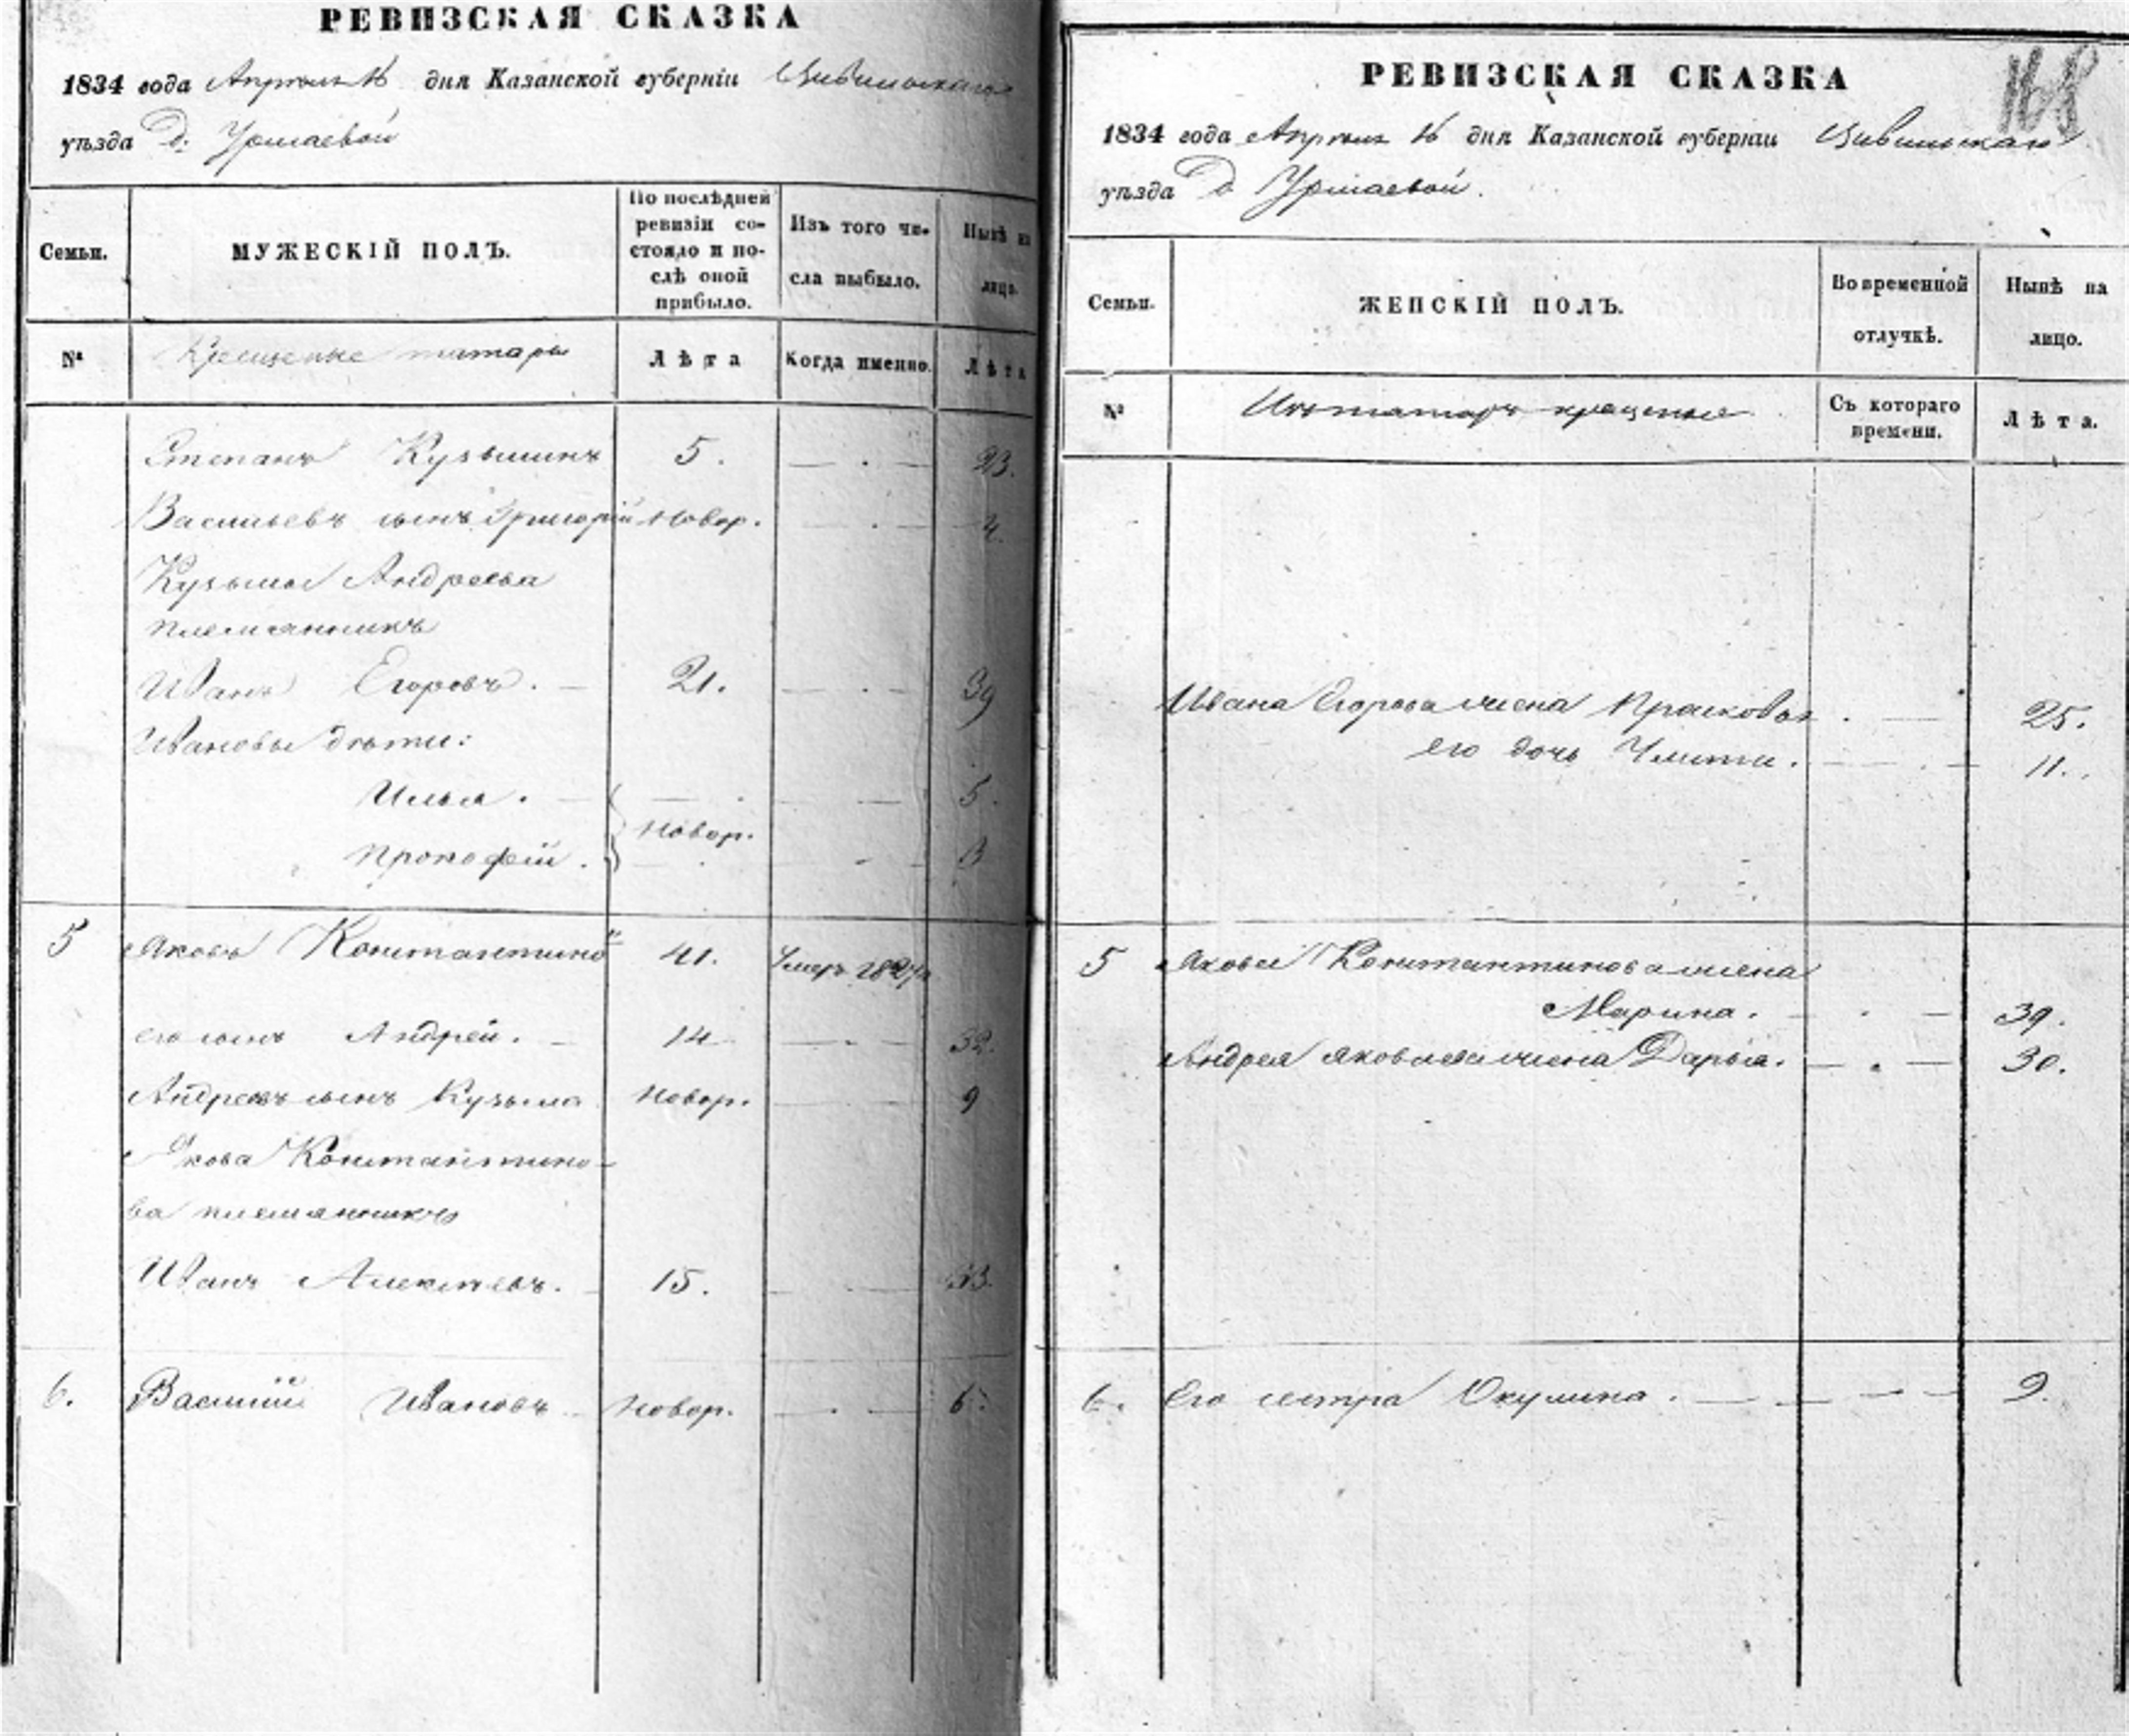 РЕВИЗСКАЯ СКАЗКА
1834 года Апреля 16 дня Казанской губернiи Цивильскаго
уѣзда д. Урмаевой
Семьи.
МУЖЕСКIЙ ПОЛЪ.
По послѣдней
ревизiи со-
стояло и по-
слѣ оной
прибыло.
Изъ того чи-
сла выбыло.
Нынѣ на
лицо.
№
Крещеные татары
Лѣта
Когда именно.
Лѣта
Степанъ Кузьминъ 5. 23.
Васильевъ сынъ Григорiй новор. 4.
Кузьмы Андреева
племянникъ
Иванъ Егоровъ. 21. 39
Ивановы дѣти:
Илья. 5.
новор.
Прокофей. 3
5 Яковъ Константинов 41. Умеръ
его сынъ Андрей. 14 32.
Андреевъ сынъ Кузьма новор. 9
Якова Константино-
ва племянникъ
Иванъ Алексѣевъ. 15. 33.
6. Василiй Ивановъ новор. 6.
168
РЕВИЗСКАЯ СКАЗКА
1834 года Апреля 16 дня Казанской губернiи Цивильскаго
уѣзда д Урмаевой.
Семьи.
ЖЕНСКIЙ ПОЛЪ.
Во временной
отлучкѣ.
Нынѣ на
лицо.
№
Изъ татаръ крещеные
Съ котораго
времени.
Лѣта.
Ивана Егорова жена Прасковья. 25.
его дочь 11.
5 Якова Константинова жена
Марина. 39.
Андрея Яковлева жена Дарья. 30.
6. Его сестра Окулина. 9.